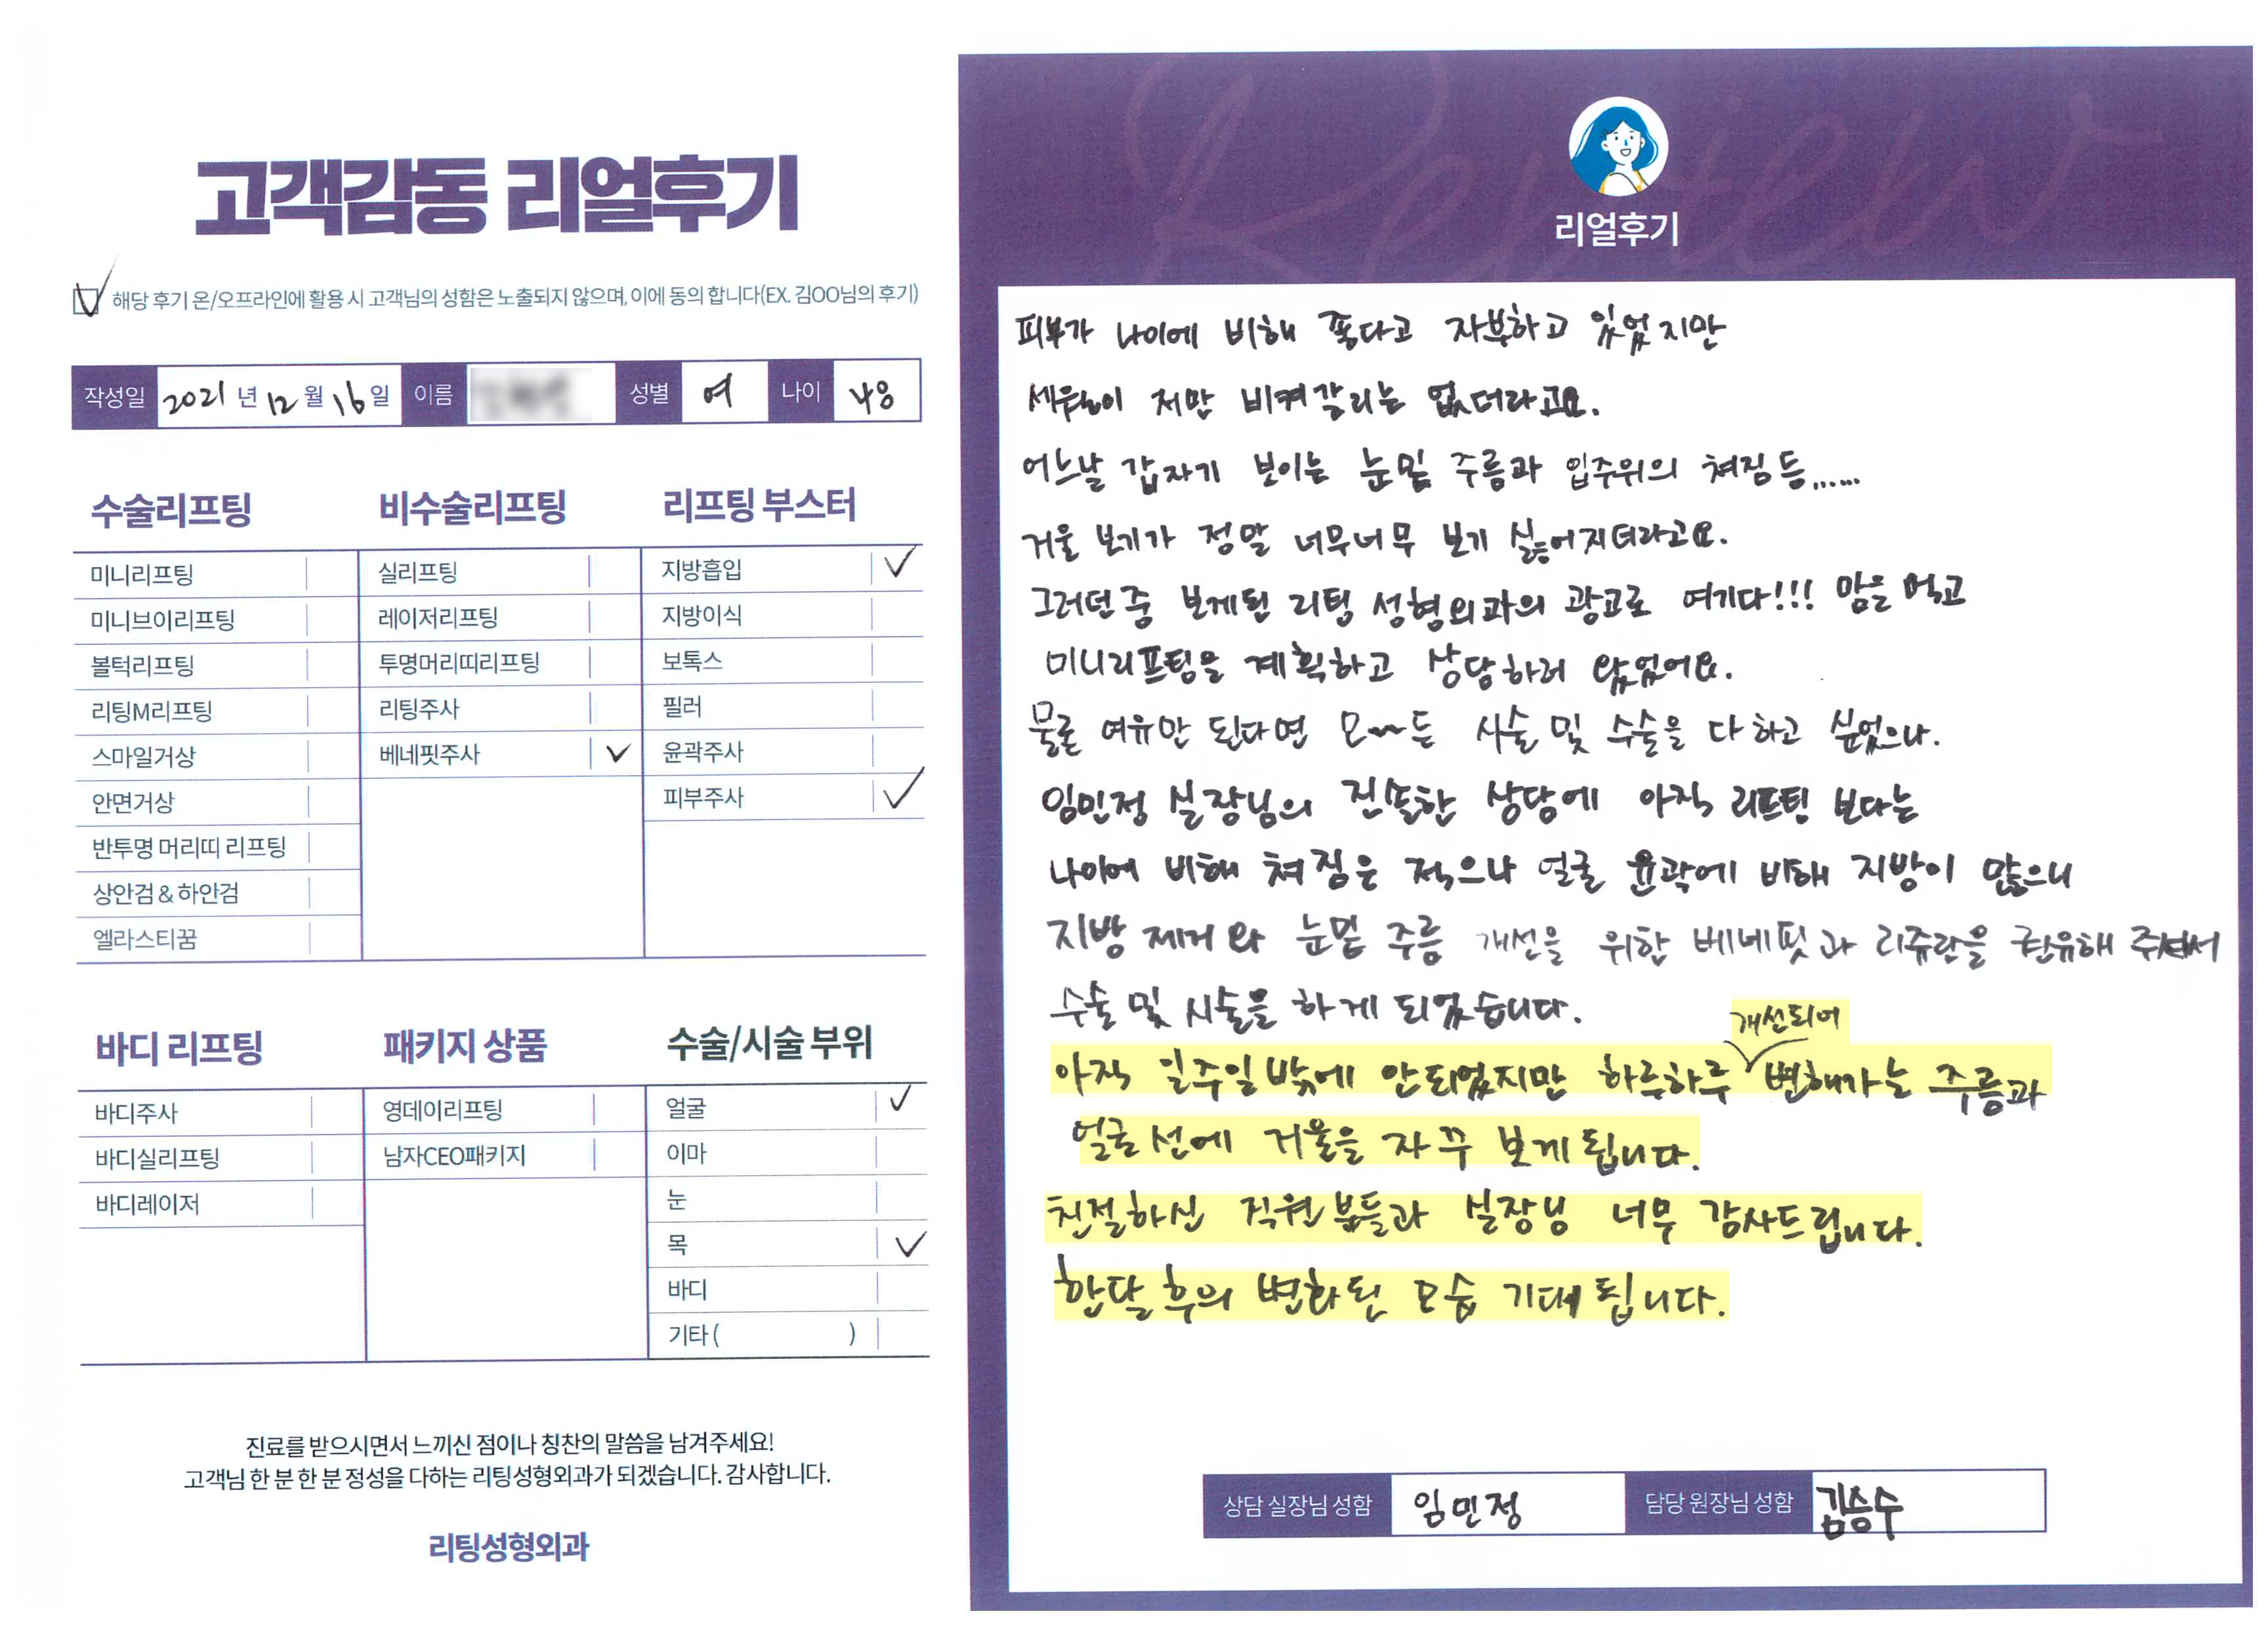 고객감동 리얼후기
해당 후기 온/오프라인에 활용 시 고객님의 성함은 노출되지 않으며, 이에 동의 합니다(EX. 김OO님의 후기)
작성일 2021 년 12 월 16 일 이름 성별 여 나이 48
수술리프팅
미니리프팅
미니브이리프팅
볼턱리프팅
리팅M리프팅
스마일거상
안면거상
반투명 머리띠 리프팅
상안검 & 하안검
엘라스티꿈
비수술리프팅
실리프팅
레이저리프팅
투명머리띠리프팅
리팅주사
베네핏주사
리프팅 부스터
지방흡입
지방이식
보톡스
필러
윤곽주사
피부주사
바디 리프팅
바디주사
바디실리프팅
바디레이저
패키지 상품
영데이리프팅
남자CEO패키지
수술/시술 부위
얼굴
이마
눈
목
바디
기타 ( )
진료를 받으시면서 느끼신 점이나 칭찬의 말씀을 남겨주세요!
고객님 한 분 한 분 정성을 다하는 리팅성형외과가 되겠습니다. 감사합니다.
리팅성형외과
Review
리얼후기
피부가 나이에 비해 좋다고 자부하고 있었지만
세월이 저만 비켜갈리는 없더라고요.
어느날 갑자기 보이는 눈밑 주름과 입주위의 쳐짐 등......
거울 보기가 정말 너무너무 보기 싫어지더라고요.
그러던 중 보게된 리팅 성형외과의 광고로 여기다!!! 맘을 먹고
미니리프팅을 계획하고 상담하러 왔었어요.
물론 여유만 된다면 모~~든 시술 및 수술을 다 하고 싶었으나.
임민정 실장님의 진솔한 상담에 아직 리프팅 보다는
나이에 비해 쳐짐은 적으나 얼굴 윤곽에 비해 지방이 많으니
지방 제거와 눈밑 주름 개선을 위한 베네핏과 리쥬란을 권유해 주셔서
수술 및 시술을 하게 되었습니다.
아직 일주일밖에 안되었지만 하루하루 개선되어 변해가는 주름과
얼굴선에 거울을 자꾸 보게 됩니다.
친절하신 직원분들과 실장님 너무 감사드립니다.
한달 후의 변화된 모습 기대됩니다.
상담 실장님 성함 임민정 담당 원장님 성함 김승수